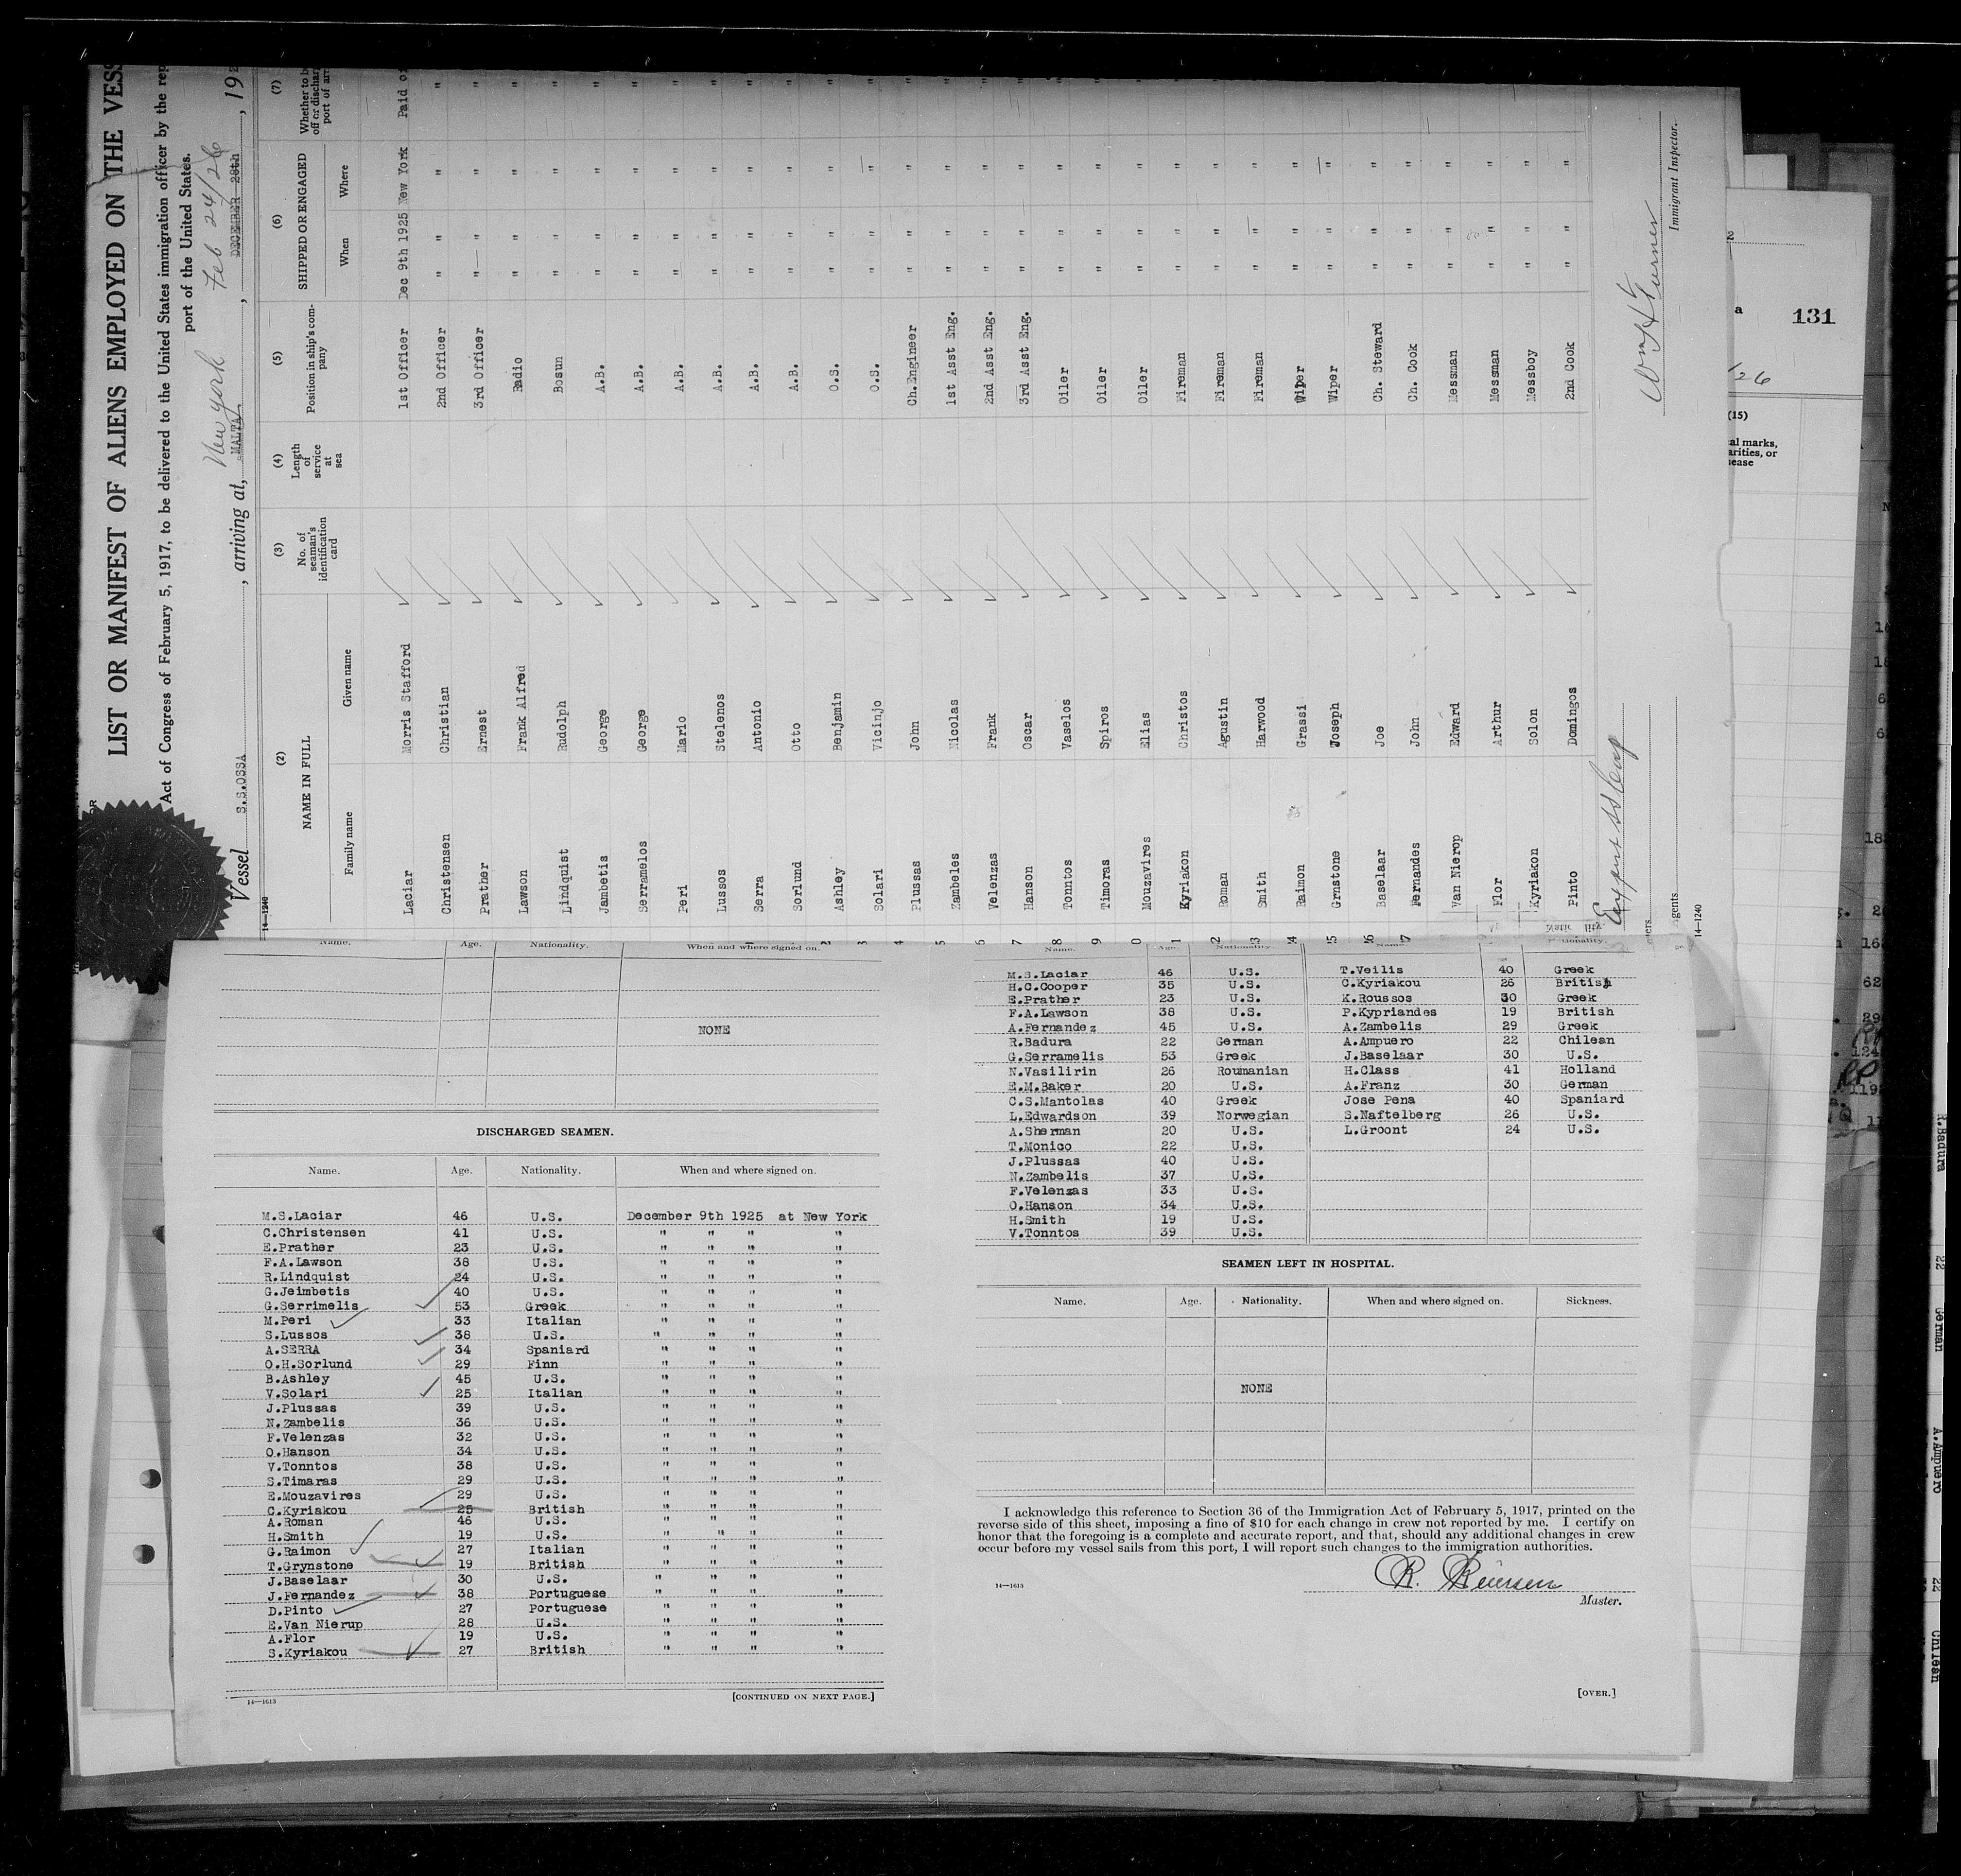 LIST OR MANIFEST OF ALIENS EMPLOYED ON THE VESS
Act of Congress of February 5, 1917, to be delivered to the United States immigration officer by the rep
port of the United States.
Vessel S.S.OSSA, arriving at, MALTA, New York Feb 24/26 DECEMBER 28th, 192
(2) (3) (4) (5) (6) (7)
NAME IN FULL
Family name Given name
No. of seaman's identification card
Length of service at sea
Position in ship's company
SHIPPED OR ENGAGED
When Where
Whether to b
off or dischar
port of arr
Laciar Morris Stafford 1st Officer Dec 9th 1925 New York Paid o
Christensen Christian 2nd Officer " " " "
Prather Ernest 3rd Officer " " " "
Lawson Frank Alfred Radio " " " "
Lindquist Rudolph Bosun " " " "
Jambetis George A.B. " " " "
Serramelos George A.B. " " " "
Peri Mario A.B. " " " "
Lussos Stelenos A.B. " " " "
Serra Antonio A.B. " " " "
Sorlund Otto A.B. " " " "
Ashley Benjamin O.S. " " " "
Solari Vicinjo O.S. " " " "
Plussas John Ch.Engineer " " " "
Zambeles Nicolas 1st Asst Eng. " " " "
Velenzas Frank 2nd Asst Eng. " " " "
Hanson Oscar 3rd Asst Eng. " " " "
Tonntos Vaselos Oiler " " " "
Timoras Spiros Oiler " " " "
Mouzavires Elias Oiler " " " "
Kyriakon Christos Fireman " " " "
Roman Agustin Fireman " " " "
Smith Harwood Fireman " " " "
Raimon Grassi Wiper " " " "
Grnstone Joseph Wiper " " " "
Baselaar Joe Ch. Steward " " " "
Fernandes John Ch. Cook " " " "
Van Nierop Edward Messman " " " "
Flor Arthur Messman " " " "
Kyriakon Solon Messboy " " " "
Pinto Domingos 2nd Cook " " " "
Immigrant Inspector.
14—1240
14—1240
131
(15)
al marks,
arities, or
sease
Name. Age. Nationality. When and where signed on.
NONE
DISCHARGED SEAMEN.
Name. Age. Nationality. When and where signed on.
M.S.Laciar 46 U.S. December 9th 1925 at New York
C.Christensen 41 U.S. " " " "
E.Prather 23 U.S. " " " "
F.A.Lawson 38 U.S. " " " "
R.Lindquist 24 U.S. " " " "
G.Jeimbetis 40 U.S. " " " "
G.Serrimelis 53 Greek " " " "
M.Peri 33 Italian " " " "
S.Lussos 38 U.S. " " " "
A.SERRA 34 Spaniard " " " "
O.H.Sorlund 29 Finn " " " "
B.Ashley 45 U.S. " " " "
V.Solari 25 Italian " " " "
J.Plussas 39 U.S. " " " "
N.Zambelis 36 U.S. " " " "
F.Velenzas 32 U.S. " " " "
O.Hanson 34 U.S. " " " "
V.Tonntos 38 U.S. " " " "
S.Timaras 29 U.S. " " " "
E.Mouzavires 29 U.S. " " " "
C.Kyriakou 25 British " " " "
A.Roman 46 U.S. " " " "
H.Smith 19 U.S. " " " "
G.Raimon 27 Italian " " " "
T.Grynstone 19 British " " " "
J.Baselaar 30 U.S. " " " "
J.Fernandez 38 Portuguese " " " "
D.Pinto 27 Portuguese " " " "
E.Van Nierup 28 U.S. " " " "
A.Flor 19 U.S. " " " "
S.Kyriakou 27 British " " " "
14—1613 [CONTINUED ON NEXT PAGE.]
Name. Age. Nationality. Name. Nationality.
M.S.Laciar 46 U.S. T.Veilis 40 Greek
H.C.Cooper 35 U.S. C.Kyriakou 26 British
E.Prather 23 U.S. K.Roussos 30 Greek
F.A.Lawson 38 U.S. P.Kypriandes 19 British
A.Fernandez 45 U.S. A.Zambelis 29 Greek
R.Badura 22 German A.Ampuero 22 Chilean
G.Serramelis 53 Greek J.Baselaar 30 U.S.
N.Vasilirin 26 Roumanian H.Class 41 Holland
E.M.Baker 20 U.S. A.Franz 30 German
C.S.Mantolas 40 Greek Jose Pena 40 Spaniard
L.Edwardson 39 Norwegian S.Naftelberg 26 U.S.
A.Sherman 20 U.S. L.Groont 24 U.S.
T.Monico 22 U.S.
J.Plussas 40 U.S.
N.Zambelis 37 U.S.
F.Velenzas 33 U.S.
O.Hanson 34 U.S.
H.Smith 19 U.S.
V.Tonntos 39 U.S.
SEAMEN LEFT IN HOSPITAL.
Name. Age. Nationality. When and where signed on. Sickness.
NONE
I acknowledge this reference to Section 36 of the Immigration Act of February 5, 1917, printed on the
reverse side of this sheet, imposing a fine of $10 for each change in crew not reported by me. I certify on
honor that the foregoing is a complete and accurate report, and that, should any additional changes in crew
occur before my vessel sails from this port, I will report such changes to the immigration authorities.
14—1613
Master.
[OVER.]
R.Badura 22 German
A.Ampuero 22 Chilean